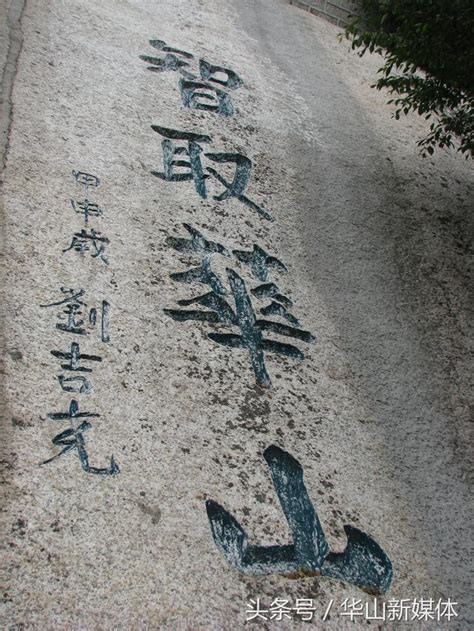 智取華山
甲申歲
劉吉尧
头条号 / 华山新媒体